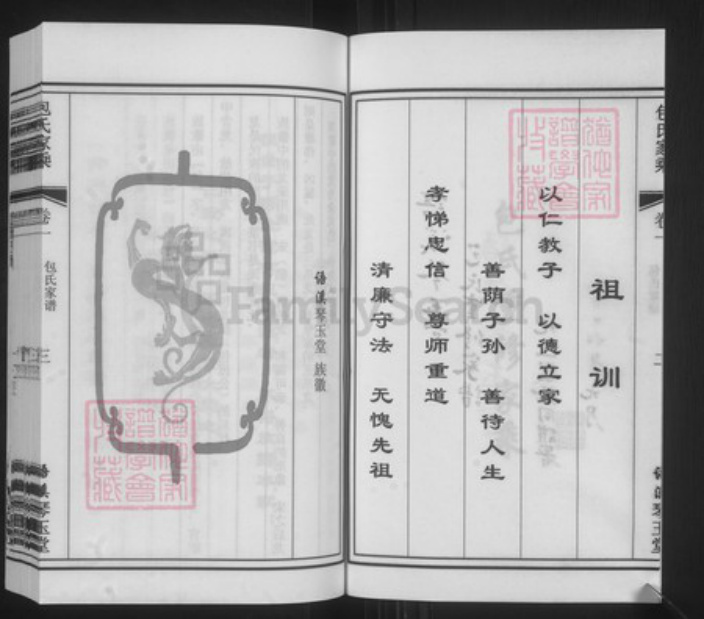 祖训
以仁教子 以德立家
善荫子孙 善待人生
孝悌忠信 尊师重道
清廉守法 无愧先祖
包氏家乘
卷一
二
琴玉堂
琴玉堂 族徽
包氏家乘
卷一
包氏家谱
三
琴玉堂
FamilySearch